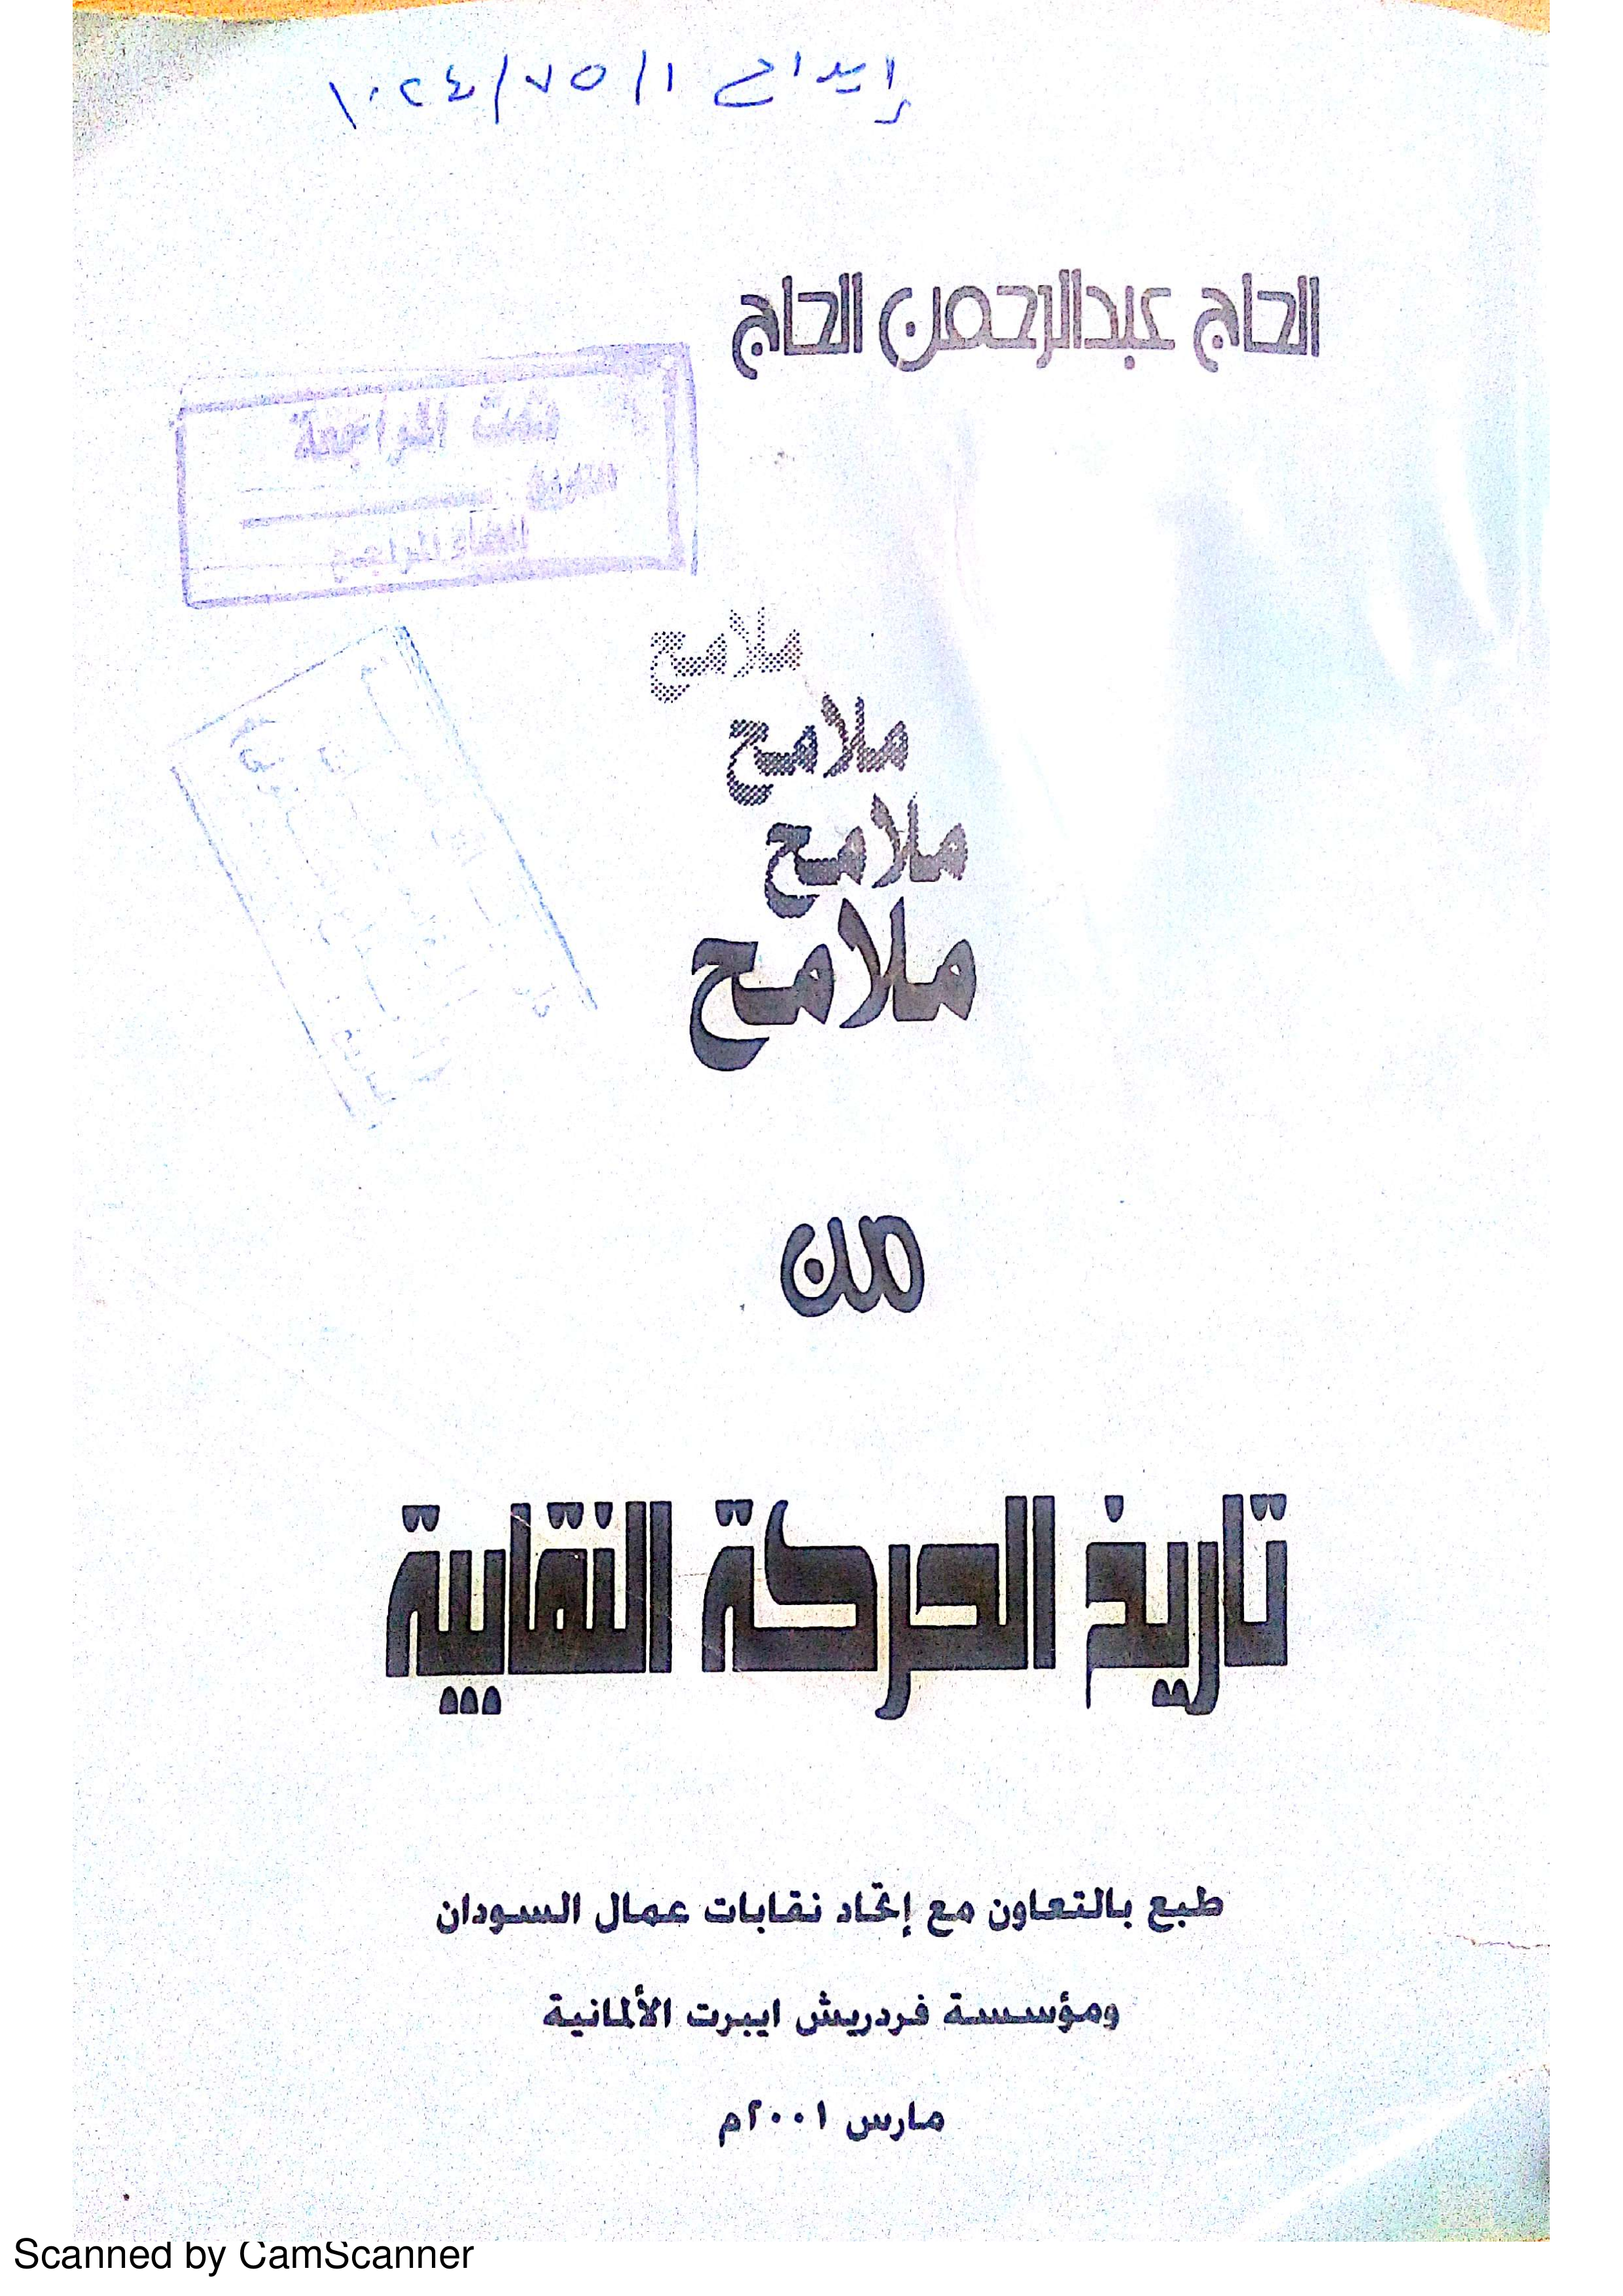 إيداع ١٠٢٤/٧٥/١
الحاج عبدالرحمن الحاج
تمت المراجعة
التاريخ
امضاء المراجع
ملامح
ملامح
ملامح
ملامح
من
تاريخ الحركة النقابية
طبع بالتعاون مع إتحاد نقابات عمال السودان
ومؤسسة فردريش ايبرت الألمانية
مارس ٢٠٠١م
Scanned by CamScanner